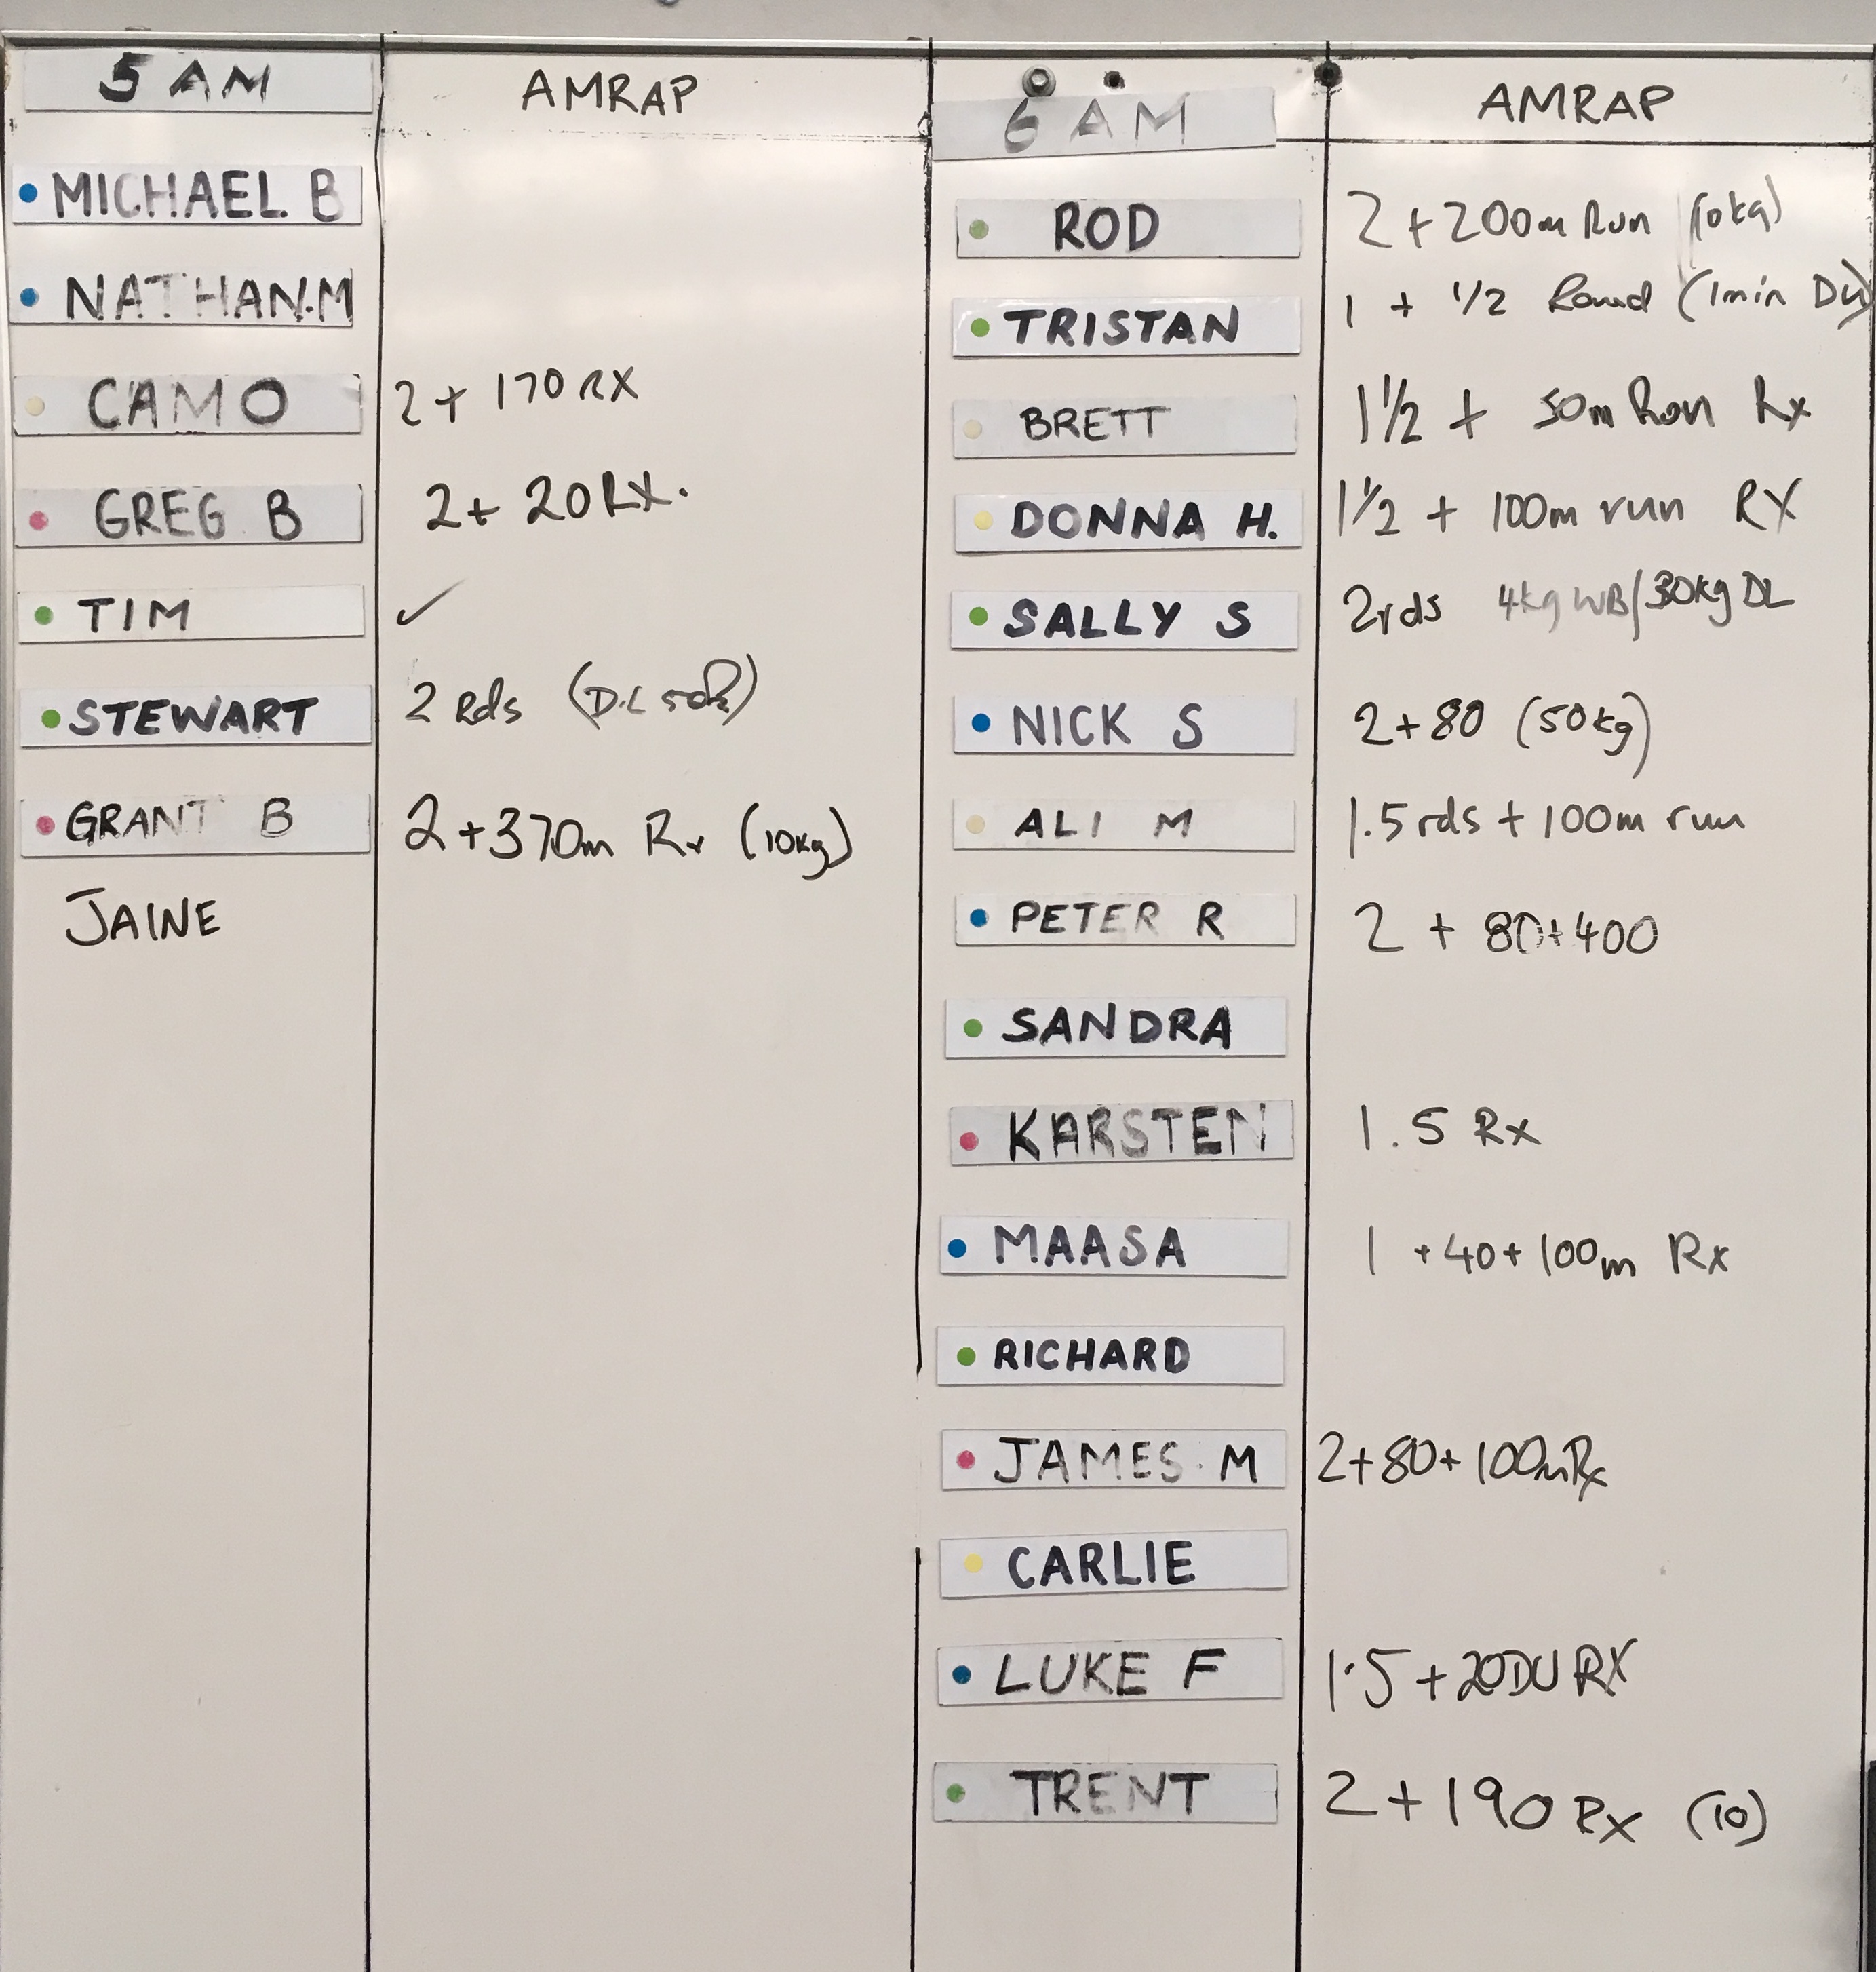 5 AM AMRAP
MICHAEL B
NATHAN.M
CAMO 2 + 170 RX
GREG B 2 + 20 RX.
TIM ✓
STEWART 2 Rds (D.L
GRANT B 2 + 370m Rx (10kg)
JAINE
6 AM AMRAP
ROD 2 + 200m Run (10kg)
TRISTAN 1 + 1/2 Round (1min DU)
BRETT 1 1/2 + 50m Run Rx
DONNA H. 1 1/2 + 100m run RX
SALLY S 2rds 4kg WB/30kg DL
NICK S 2+80 (50kg)
ALI M 1.5 rds + 100m run
PETER R 2 + 80+400
SANDRA
KARSTEN 1.5 Rx
MAASA 1 +40+100m Rx
RICHARD
JAMES M 2+80+100m Rx
CARLIE
LUKE F 1.5 +20DU RX
TRENT 2+190 Rx (10)